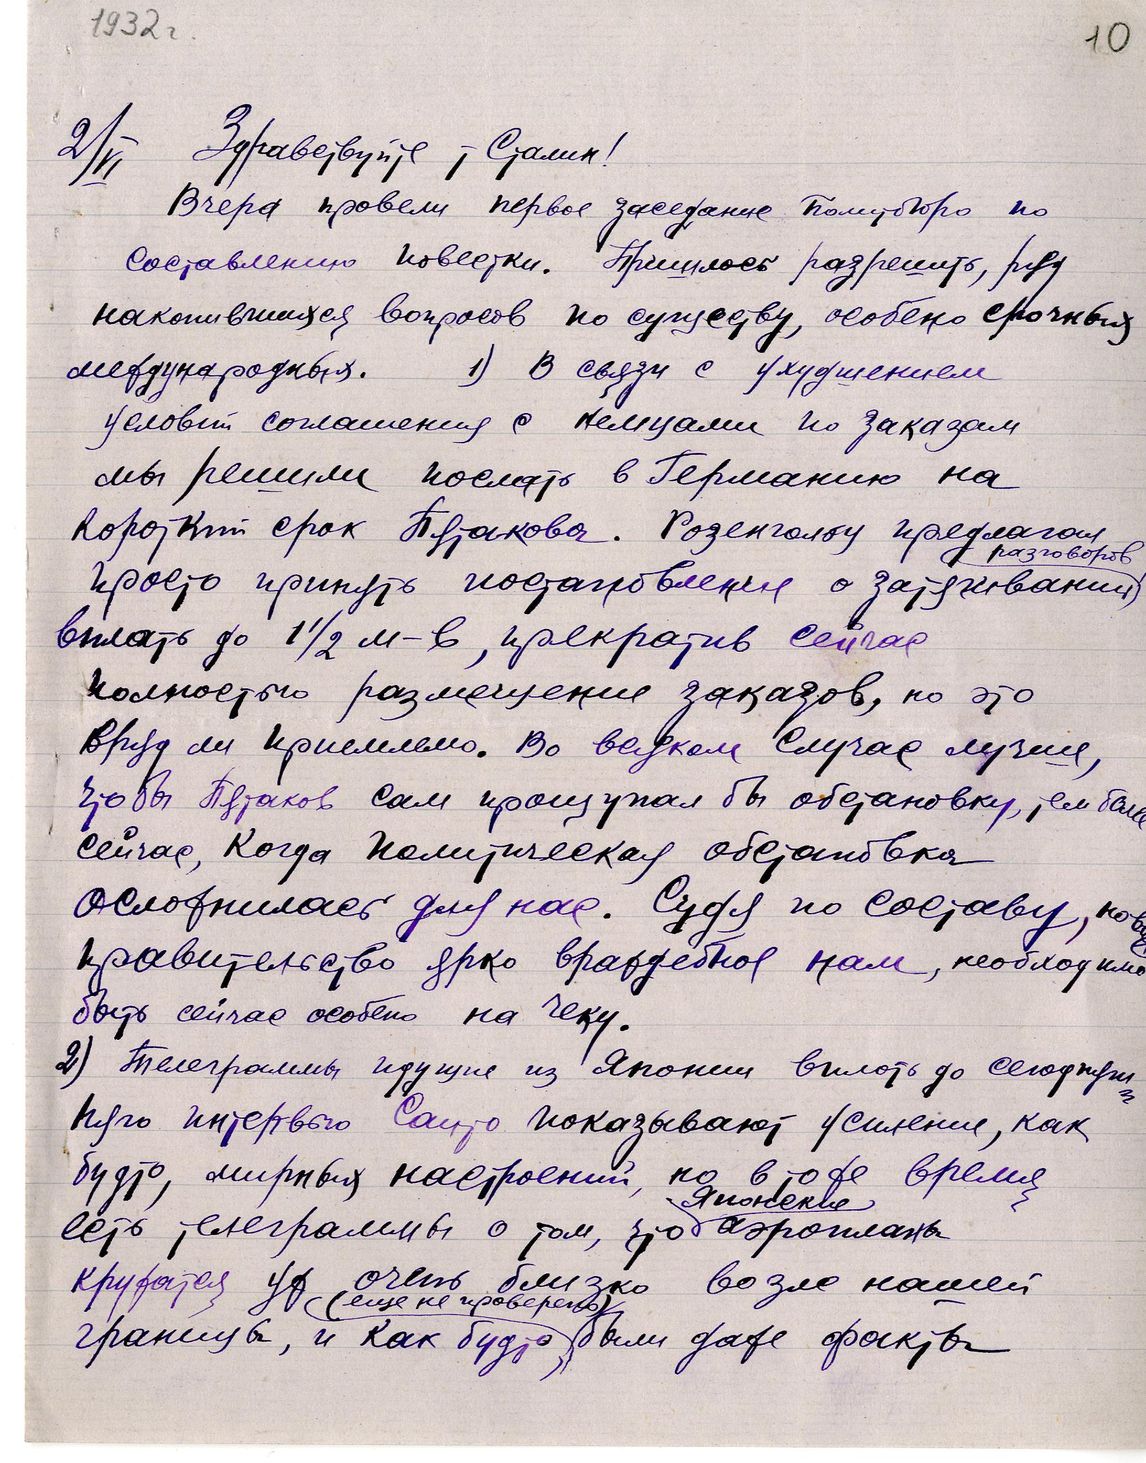 1932 г.
10
2/VI Здравствуйте т Сталин!
Вчера провели первое заседание Политбюро по
составлению повестки. Пришлось разрешить, ряд
накопившихся вопросов по существу, особено срочных
международных. 1) В связи с ухудшением
условий соглашения с немцами по заказам
мы решили послать в Германию на
короткий срок Пятакова. Розенгольц предлагал
разговоров
просто принять постановление о затягивании
вплоть до 1 1/2 м-в, прекратив сейчас
полностью размещение заказов, но это
вряд ли приемлемо. Во всяком случае лучше,
чтобы Пятаков сам прощупал бы обстановку, тем более
сейчас, когда политическая обстановка
осложнилась для нас. Судя по составу, новое
правительство ярко враждебное нам, необходимо
быть сейчас особено на чеку.
2) Телеграммы идущие из Японии вплоть до сегодняш=
няго интервью Саито показывают усиление, как
будто, мирных настроений, но в тоже время
Японские
есть телеграммы о том, что аэропланы
кружатся уж очень близко возле нашей
(еще не проверены)
границы, и как будто, были даже факты